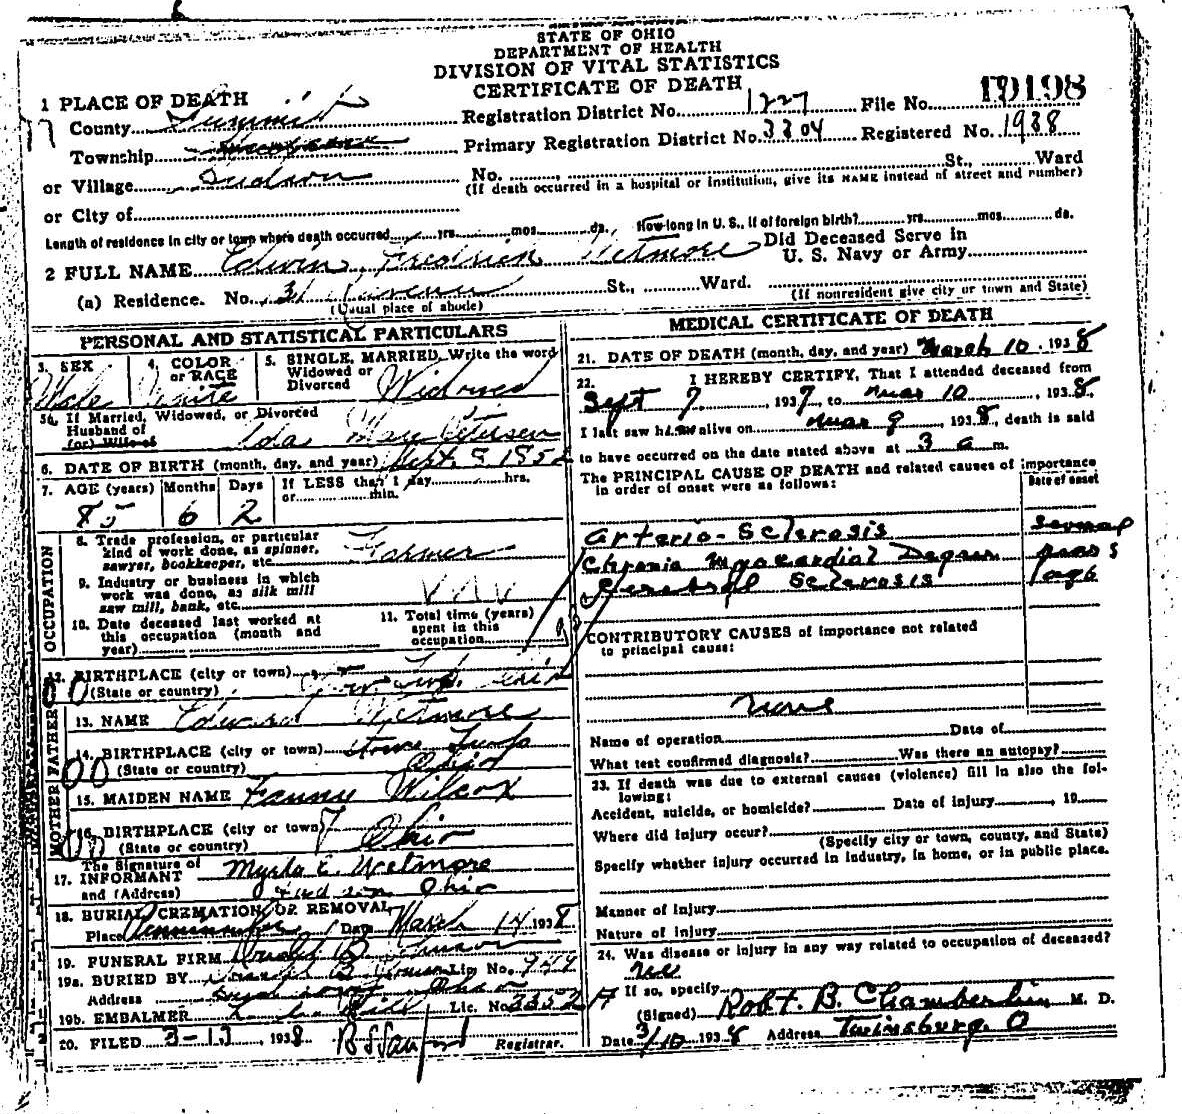 STATE OF OHIO
DEPARTMENT OF HEALTH
DIVISION OF VITAL STATISTICS
CERTIFICATE OF DEATH
1 PLACE OF DEATH
County Summit Registration District No. 1227 File No. 19198
Township Primary Registration District No. 3304 Registered No. 1938
or Village Hudson No. St., Ward
(If death occurred in a hospital or institution, give its NAME instead of street and number)
or City of
Length of residence in city or town where death occurred yrs. mos. ds. How long in U. S., if of foreign birth? yrs. mos. ds.
2 FULL NAME Edwin Fredrick Wetmore Did Deceased Serve in
U. S. Navy or Army
(a) Residence. No. 31 Ravenna St., Ward.
(Usual place of abode) (If nonresident give city or town and State)
PERSONAL AND STATISTICAL PARTICULARS
3. SEX 4. COLOR or RACE 5. SINGLE, MARRIED, Write the word
Widowed or
Divorced
Male White Widowed
5a. If Married, Widowed, or Divorced
Husband of
(or) Wife of Ida May Peterson
6. DATE OF BIRTH (month, day, and year) Sept. 8 1852
7. AGE (years) Months Days If LESS than 1 day hrs.
or min.
85 6 2
OCCUPATION
8. Trade profession, or particular
kind of work done, as spinner,
sawyer, bookkeeper, etc. Farmer
9. Industry or business in which
work was done, as silk mill
saw mill, bank, etc.
10. Date deceased last worked at
this occupation (month and
year)
11. Total time (years)
spent in this
occupation
12. BIRTHPLACE (city or town) Twp. Ohio
(State or country)
FATHER
13. NAME Edward Wetmore
14. BIRTHPLACE (city or town) Stowe Twp
(State or country) Ohio
MOTHER
15. MAIDEN NAME Fanny Wilcox
16. BIRTHPLACE (city or town) ?
(State or country) Ohio
17. The Signature of
INFORMANT Myrta E. Wetmore
and (Address) Hudson Ohio
18. BURIAL, CREMATION OR REMOVAL
Place Date March 14 1938
19. FUNERAL FIRM Donald B. Johnson
19a. BURIED BY Donald B. Johnson Lic. No. 949
Address Ohio
19b. EMBALMER Lic. No. 3352
20. FILED 3-13, 1938 B S Sanford Registrar.
MEDICAL CERTIFICATE OF DEATH
21. DATE OF DEATH (month, day, and year) March 10, 1938
22. I HEREBY CERTIFY, That I attended deceased from
Sept 7, 1937, to Mar 10, 1938,
I last saw him alive on Mar 9, 1938, death is said
to have occurred on the date stated above at 3 a m.
The PRINCIPAL CAUSE OF DEATH and related causes of importance
in order of onset were as follows:
Date of onset
Arterio-Sclerosis several
Chronic Myocardial Degen years
Cerebral Sclerosis ago
CONTRIBUTORY CAUSES of importance not related
to principal cause:
None
Name of operation Date of
What test confirmed diagnosis? Was there an autopsy?
23. If death was due to external causes (violence) fill in also the fol-
lowing:
Accident, suicide, or homicide? Date of injury , 19
Where did injury occur?
(Specify city or town, county, and State)
Specify whether injury occurred in industry, in home, or in public place.
Manner of Injury
Nature of Injury
24. Was disease or injury in any way related to occupation of deceased?
no
If so, specify
(Signed) Robt. B. Chamberlin M. D.
Date 3/10 1938 Address Twinsburg, O